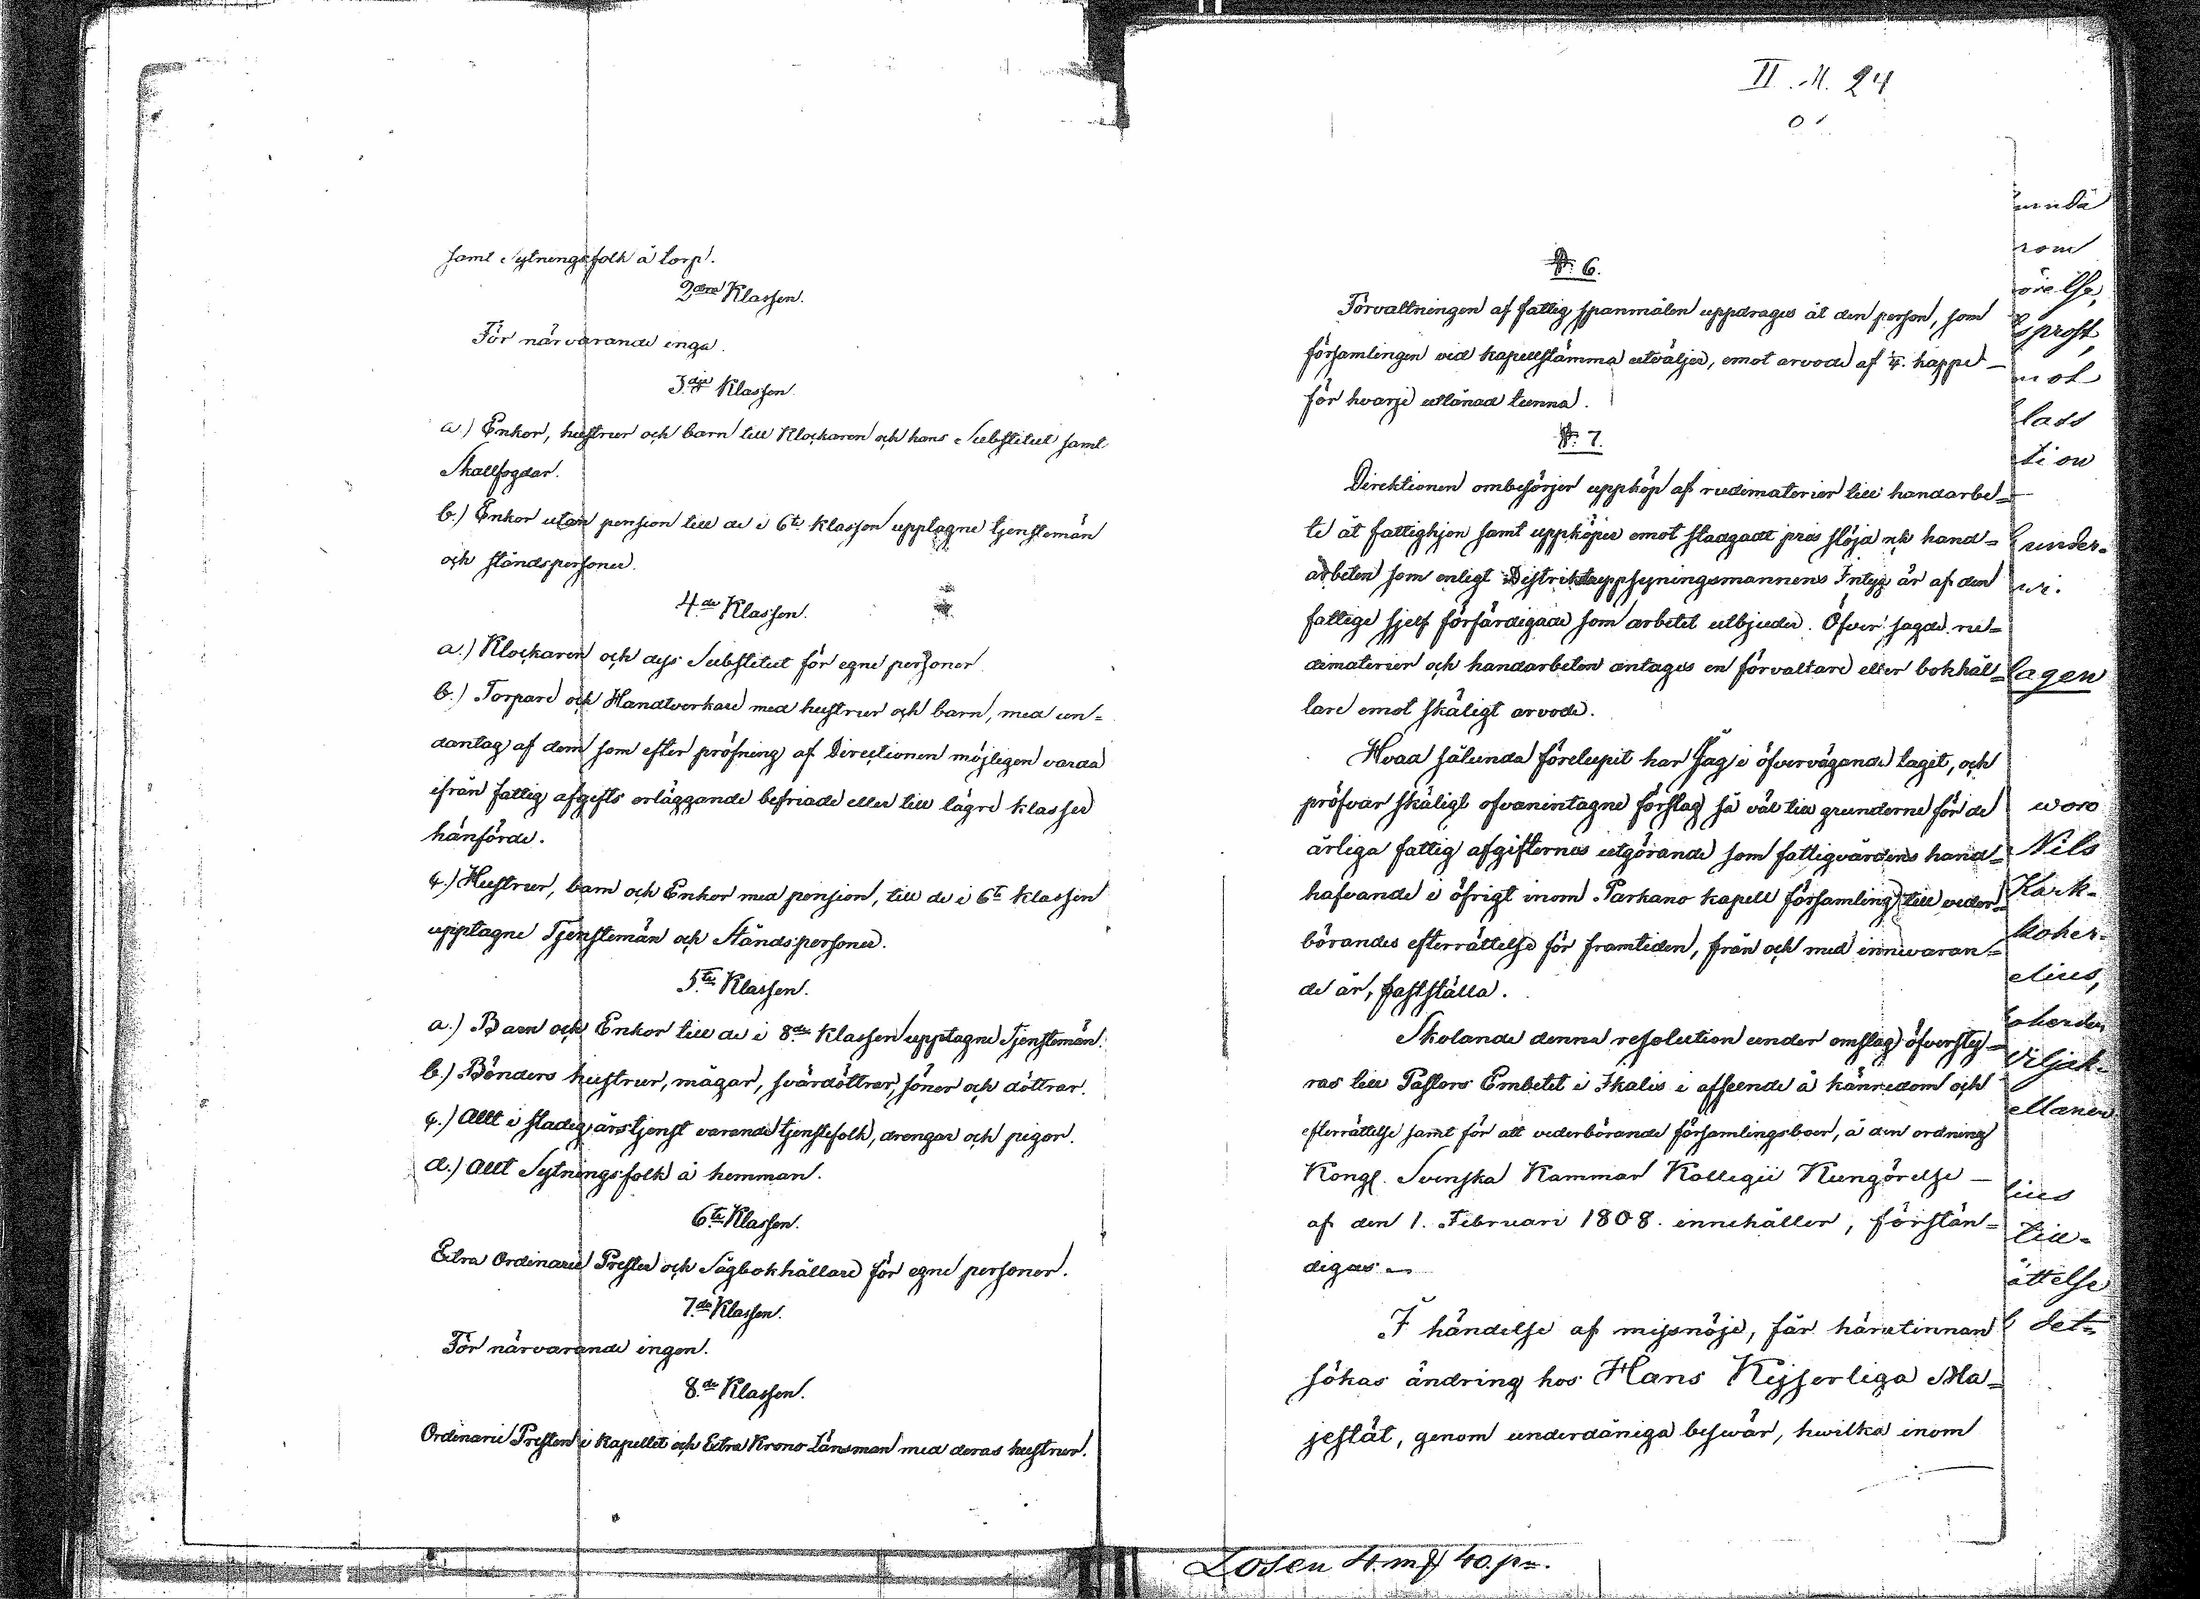 samt Sytningsfolk å torp.
2dra Klassen.
För närvarande inga.
3dje Klassen.
a.) Enkor, hustrur och barn till Klockaren och hans Substitut samt
Skallfogdar.
b.) Enkor utan pension till de i 6te klassen upptagne tjenstemän
och ståndspersoner.
4de Klassen.
a.) Klockaren och dess Substitut för egne personer
b.) Torpare och Handtverkare med hustrur och barn, med un-
dantag af dem som efter pröfning af Directionen möjligen varda
ifrån fattig afgifts erläggande befriade eller till lägre klasser
hänförde.
c.) Hustrur, barn och Enkor med pension, till de i 6te klassen
upptagne Tjenstemän och Ståndspersoner.
5te Klassen.
a.) Barn och Enkor till de i 8de Klassen upptagne Tjenstemän.
b.) Bönders hustrur, mågar, svärdöttrar, söner och döttrar.
c.) Allt i stadig årstjenst varande tjenstefolk, drengar och pigor.
d.) Allt Sytningsfolk å hemman.
6te Klassen.
Extra Ordinarie Prester och Sågbokhållare för egne personer.
7de Klassen.
För närvarande ingen.
8de Klassen.
Ordinarie Presten i Kapellet och Extra Krono Länsman med deras hustrur.
II. M. 24
§. 6.
Förvaltningen af fattig spanmålen uppdrages åt den person, som
församlingen vid kapellstämma utväljer, emot arvode af 1/4. kappe
för hvarje utlånad tunna.
§. 7.
Direktionen ombesörjer uppköp af rudimaterier till handarbe-
te åt fattighjon samt uppköper emot stadgadt pris slöjd och hand-
arbeten som enligt Distriktsuppsyningsmannens Intyg är af den
fattige sjelf förfärdigade som arbetet utbjuder. Öfver sagde ru-
dimaterier och handarbeten antages en förvaltare eller bokhål-
lare emot skäligt arvode.
Hvad sålunda förelupit har Jag i öfvervägande taget, och
pröfvar skäligt ofvanintagne förslag så väl till grunderne för de
årliga fattig afgifternes utgörande som fattigvårdens hand-
hafvande i öfrigt inom Parkano kapell församling till veder-
börandes efterrättelse för framtiden, från och med innevaran-
de år, fastställa.
Skolande denna resolution under omslag öfversty-
ras till Pastors Embetet i Ikalis i afseende å kännedom och
efterrättelse samt för att vederbörande församlingsboer, å den ordning
Kongl. Svenska Kammar Kollegii Kungörelse
af den 1. Februari 1808. innehåller, förstän-
digas.
I händelse af missnöje, får härutinnan
sökas ändring hos Hans Kejserliga Ma-
jestät, genom underdåniga beswär, hwilka inom
rom
örelse,
sprost,
mot
lass
tion
under-
wi.
lagen
woro
Nils
Kark-
koher-
elius,
oherden
Viljak-
ellanen
lius
till-
ättelse
det-
Lösen 4. mk 40. pn.